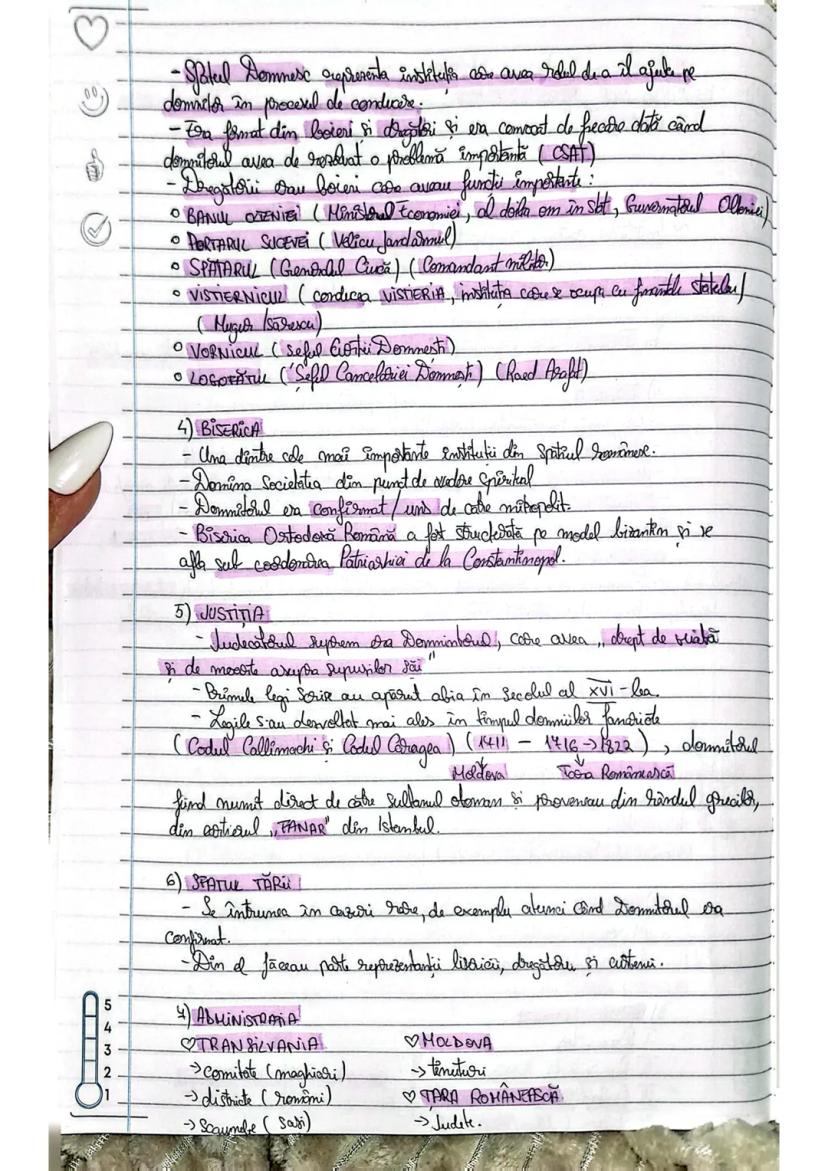 - Sfatul Domnesc reprezenta instituția care avea rolul de a îl ajuta pe
domnitor în procesul de conducere.
- Era format din boieri și dregători și era convocat de fiecare dată când
domnitorul avea de rezolvat o problemă importantă (CSAT)
- Dregătorii erau boieri care aveau funcții importante:
BANUL OLTENIEI (Ministerul Economiei, al doilea om în stat, Guvernatorul Olteniei)
PORTARUL SUCEVEI (Velicu Jandarmul)
SPĂTARUL (Generalul Ciucă) (Comandant militar)
VISTIERNICUL (conducea VISTIERIA, instituția care se ocupa cu finanțele statului)
(Mugur Isărescu)
VORNICUL (șeful Curții Domnești)
LOGOFĂTUL (Șeful Cancelariei Domnești) (Raed Arafat)
4) BISERICA
- Una dintre cele mai importante instituții din spațiul românesc.
- Domina Societatea din punct de vedere spiritual
- Domnitorul era confirmat/uns de către mitropolit.
- Biserica Ortodoxă Română a fost structurată pe model bizantin și se
afla sub coordonarea Patriarhiei de la Constantinopol.
5) JUSTIȚIA
- Judecătorul suprem era Domnitorul, care avea „drept de viață
și de moarte asupra supușilor săi"
- Primele legi scrise au apărut abia în secolul al XVI-lea.
- Legile s-au dezvoltat mai ales în timpul domniilor fanariote
(Codul Callimachi și Codul Caragea) (1711 - 1716 → 1822), domnitorul
Moldova Țara Românească
fiind numit direct de către sultanul otoman și proveneau din rândul grecilor,
din cartierul „FANAR" din Istanbul.
6) SFATUL ȚĂRII
- Se întrunea în cazuri rare, de exemplu atunci când Domnitorul era
confirmat.
- Din el făceau parte reprezentanții bisericii, dregătorii și curtenii.
7) ADMINISTRAȚIA
♡ TRANSILVANIA ♡ MOLDOVA
→ comitate (maghiari) → ținuturi
→ districte (români) ♡ ȚARA ROMÂNEASCĂ
→ Scaune (Sași) → Județe.
5
4
3
2
1